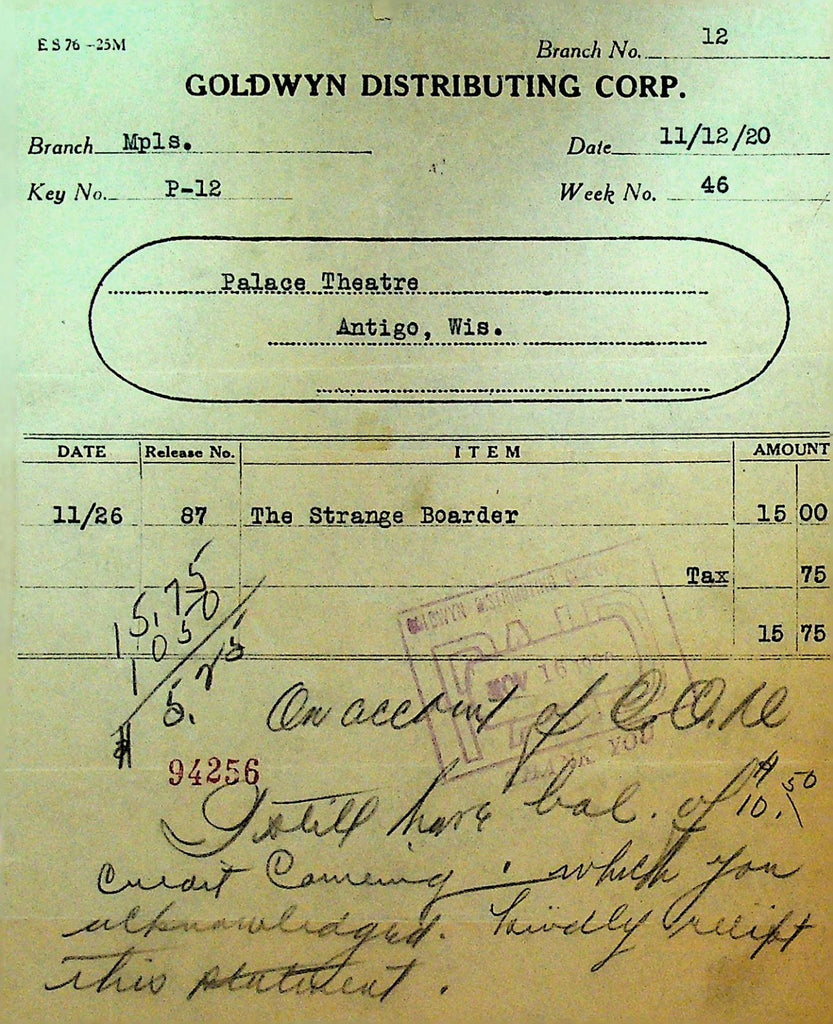 ES 76 -25M
Branch No. 12
GOLDWYN DISTRIBUTING CORP.
Branch Mpls. Date 11/12/20
Key No. P-12 Week No. 46
Palace Theatre
Antigo, Wis.
DATE Release No. ITEM AMOUNT
11/26 87 The Strange Boarder 15 00
Tax 75
15 75
15.75
10 50
5.25
GOLDWYN DISTRIBUTING CORP.
PAID
NOV 16 1920
THANK YOU
On account of C.O.D
94256
I still have bal. of $10.50
Credit Comeing. which you
acknowledged. kindly
this statement.